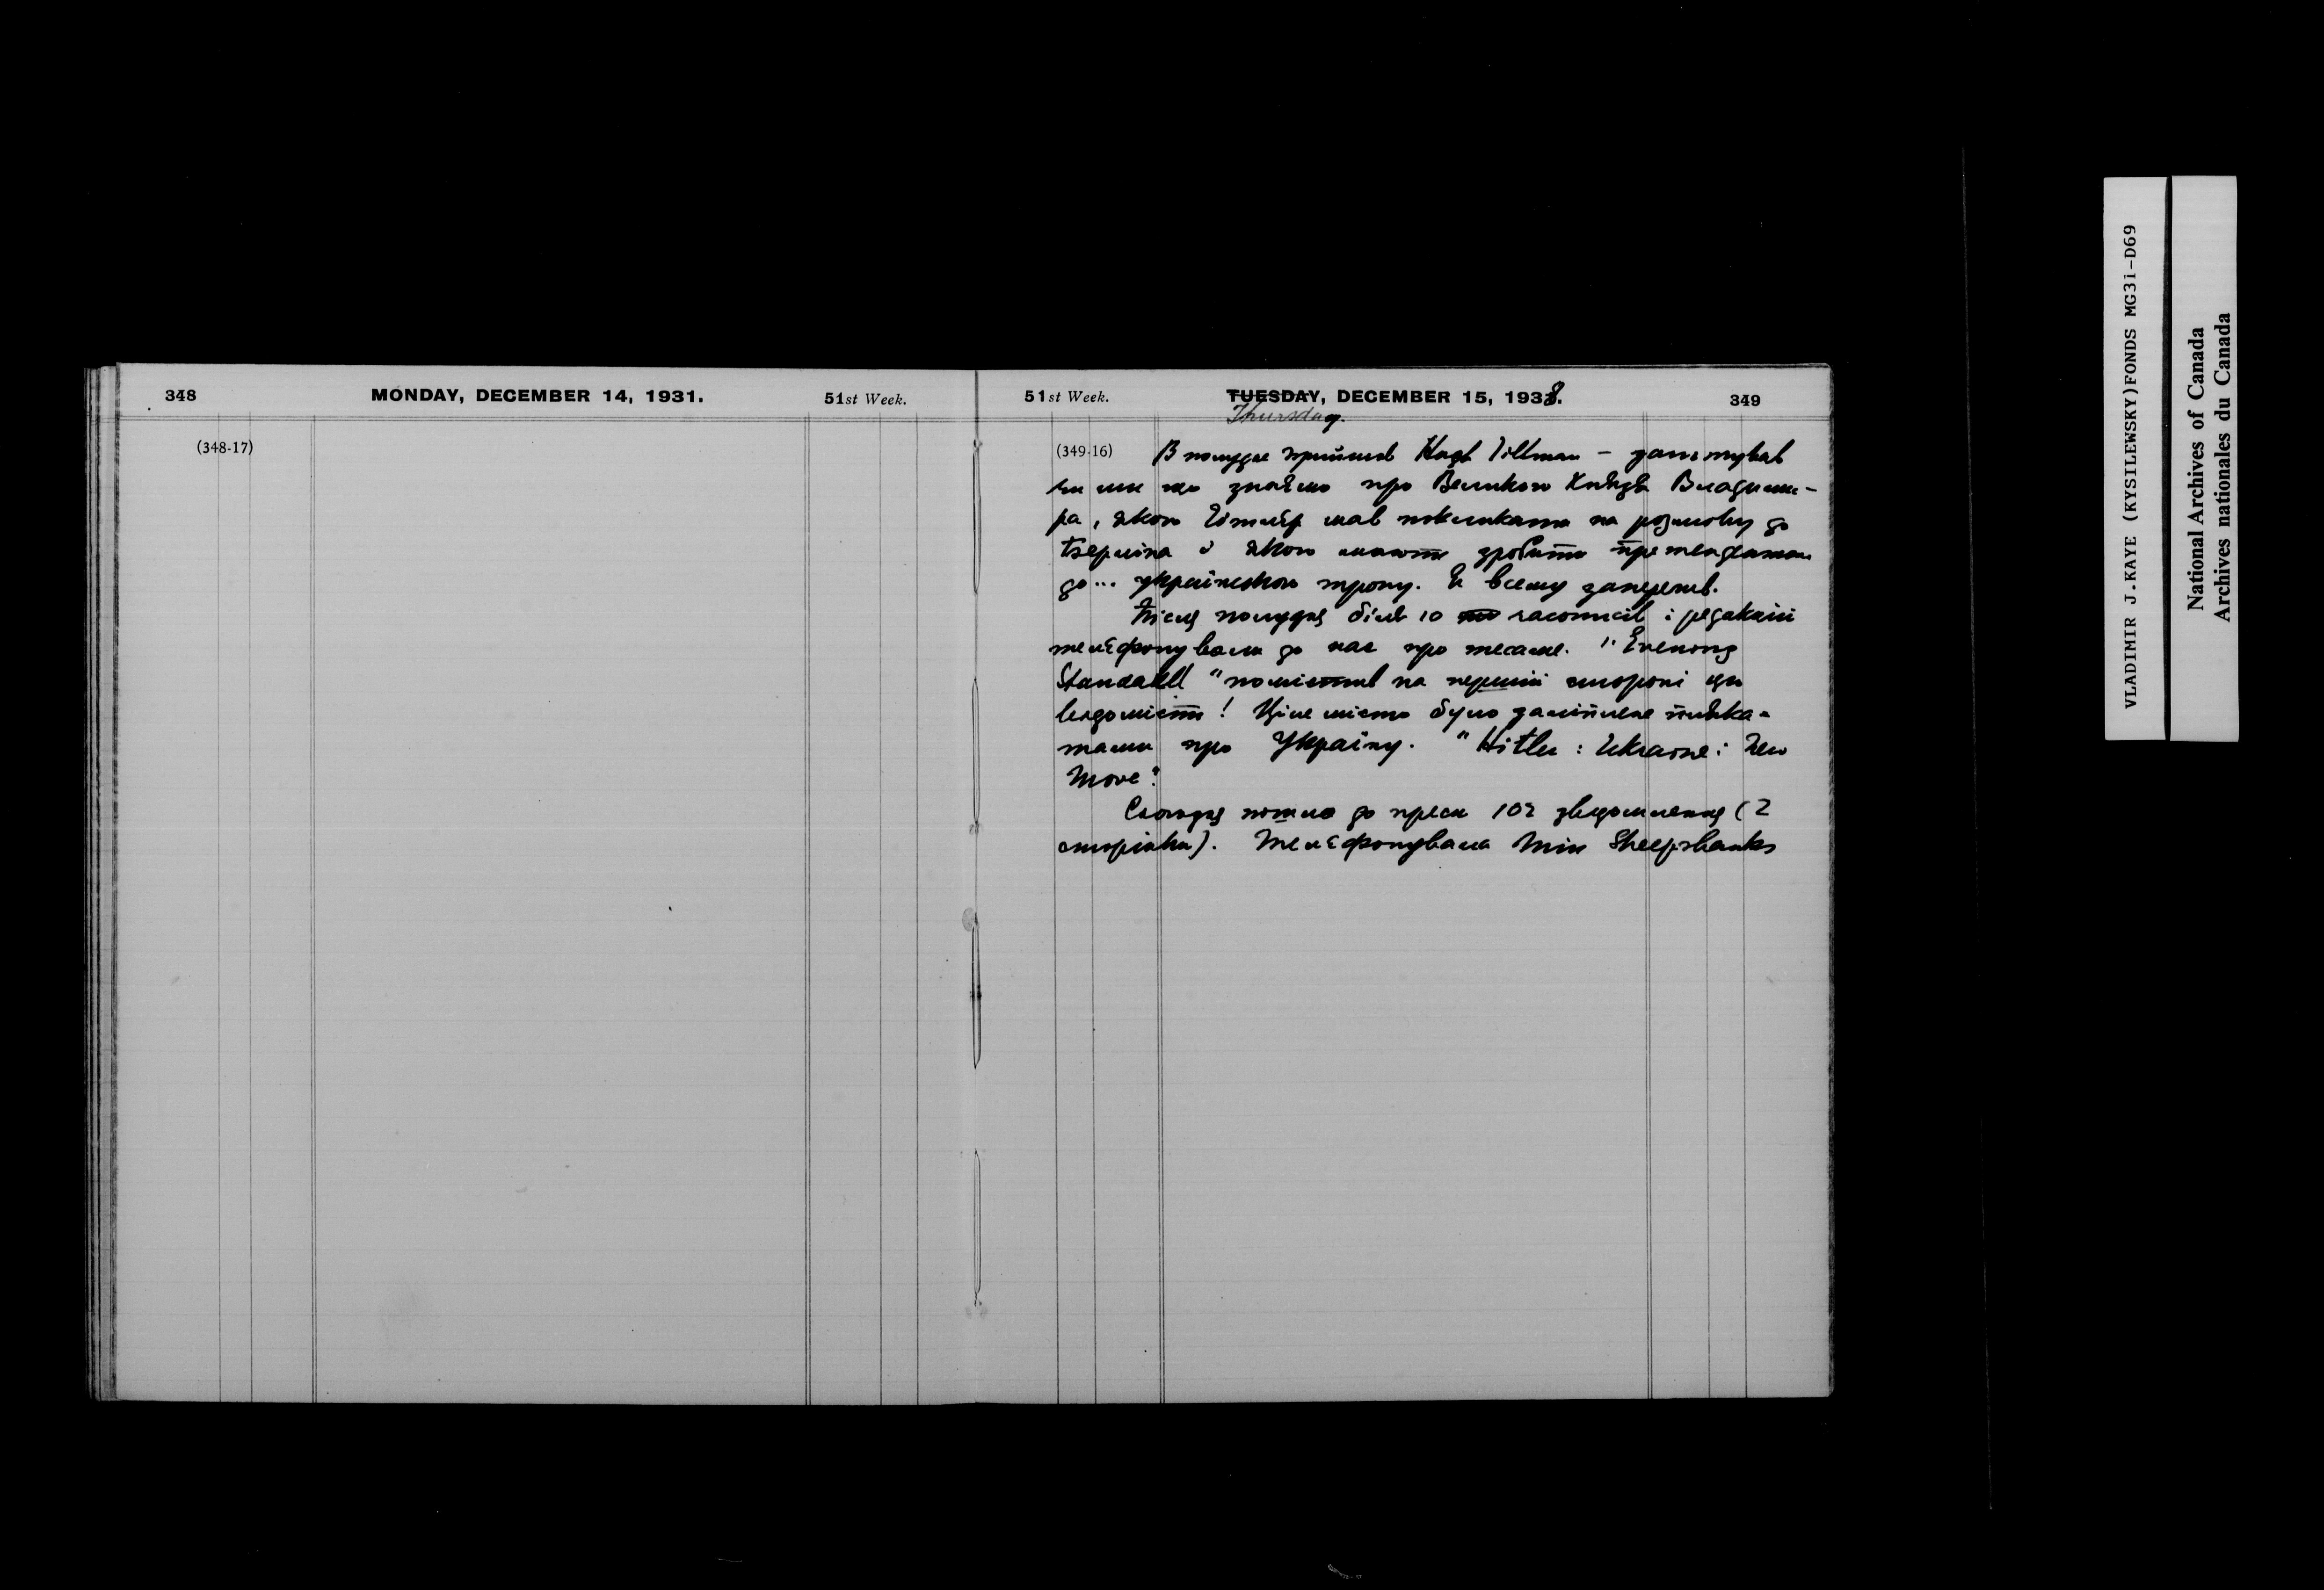 348
MONDAY, DECEMBER 14, 1931.
51st Week.
(348-17)
51st Week.
TUESDAY, DECEMBER 15, 1938.
349
Thursday.
(349-16)
В полудне прийшов Hugh Tillman – запитував
чи ми що знаємо про Великого Князя Владими-
ра, якого Гітлєр мав покликати на розмову до
Берліна і якого мають зробити претендентом
до... українського трону. Я всему заперечив.
Після полудня білш 10 часописів і редакцій
телєфонували до нас про тесаме. "Evening
Standard" помістив на першій стороні цю
відомість! Ціле місто було заліплене пляка-
тами про Україну. "Hitler: Ukraine: New
Move".
Сьогодня пішло до преси 102 звідомлення (2
сторінки). Телєфонувала Miss Sheepshanks
VLADIMIR J.KAYE (KYSILEWSKY)FONDS MG31-D69
National Archives of Canada
Archives nationales du Canada